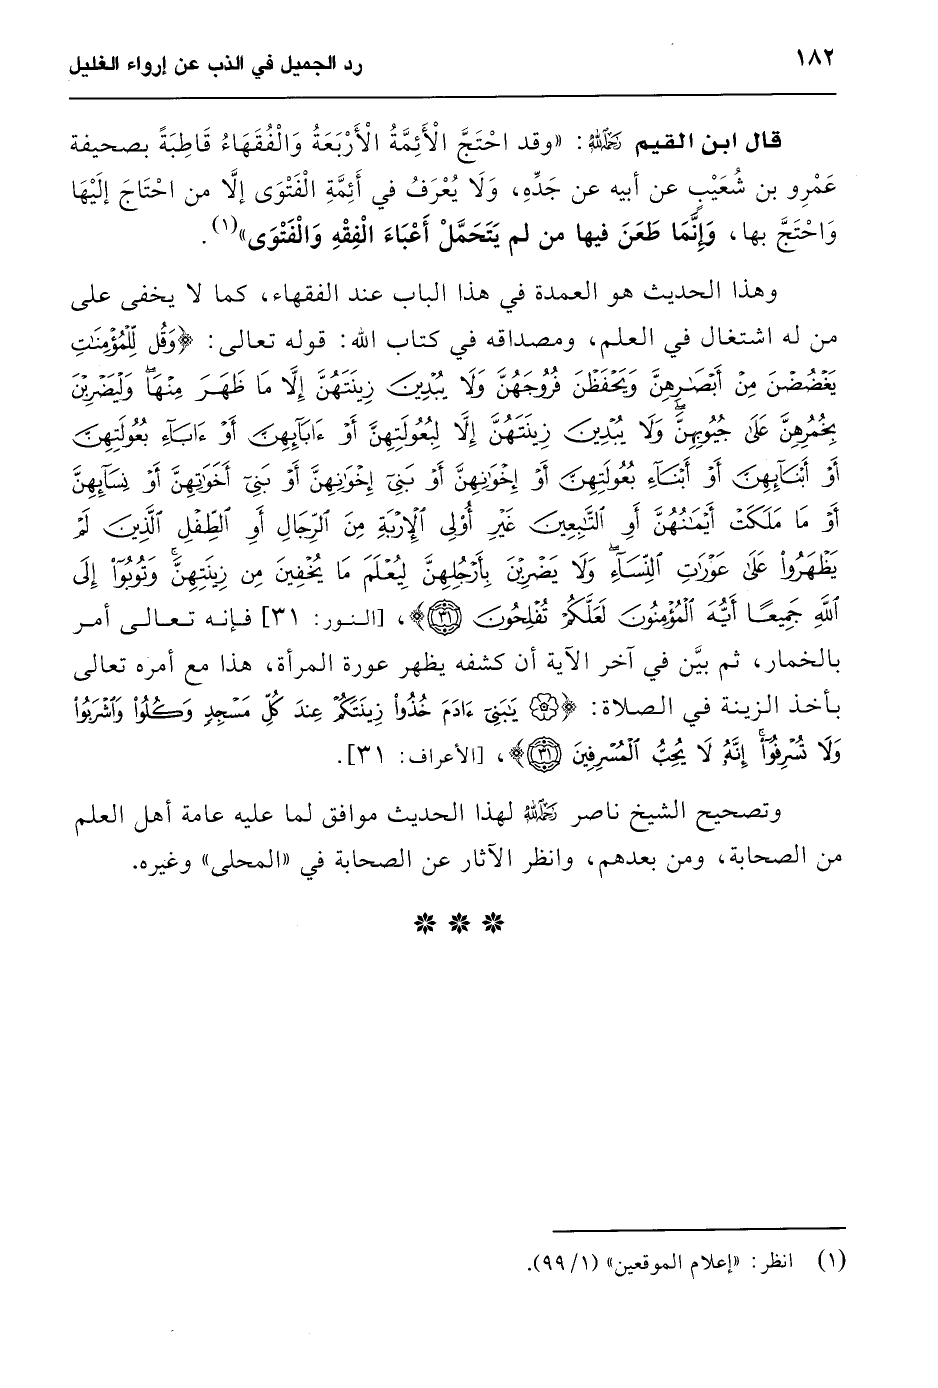 ١٨٢
رد الجميل في الذب عن إرواء الغليل
قال ابن القيم رَحِمَهُ اللَّهُ: «وقد احْتَجَّ الْأَئِمَّةُ الْأَرْبَعَةُ وَالْفُقَهَاءُ قَاطِبَةً بصحيفة
عَمْرِو بن شُعَيْبٍ عن أبيه عن جَدِّهِ، وَلَا يُعْرَفُ في أَئِمَّةِ الْفَتْوَى إلَّا من احْتَاجَ إلَيْهَا
وَاحْتَجَّ بها، وَإِنَّمَا طَعَنَ فيها من لم يَتَحَمَّلْ أَعْبَاءَ الْفِقْهِ وَالْفَتْوَى»(١).
وهذا الحديث هو العمدة في هذا الباب عند الفقهاء، كما لا يخفى على
من له اشتغال في العلم، ومصداقه في كتاب الله: قوله تعالى: ﴿وَقُل لِّلْمُؤْمِنَٰتِ
يَغْضُضْنَ مِنْ أَبْصَٰرِهِنَّ وَيَحْفَظْنَ فُرُوجَهُنَّ وَلَا يُبْدِينَ زِينَتَهُنَّ إِلَّا مَا ظَهَرَ مِنْهَا ۖ وَلْيَضْرِبْنَ
بِخُمُرِهِنَّ عَلَىٰ جُيُوبِهِنَّ ۖ وَلَا يُبْدِينَ زِينَتَهُنَّ إِلَّا لِبُعُولَتِهِنَّ أَوْ ءَابَآئِهِنَّ أَوْ ءَابَآءِ بُعُولَتِهِنَّ
أَوْ أَبْنَآئِهِنَّ أَوْ أَبْنَآءِ بُعُولَتِهِنَّ أَوْ إِخْوَٰنِهِنَّ أَوْ بَنِىٓ إِخْوَٰنِهِنَّ أَوْ بَنِىٓ أَخَوَٰتِهِنَّ أَوْ نِسَآئِهِنَّ
أَوْ مَا مَلَكَتْ أَيْمَٰنُهُنَّ أَوِ ٱلتَّٰبِعِينَ غَيْرِ أُو۟لِى ٱلْإِرْبَةِ مِنَ ٱلرِّجَالِ أَوِ ٱلطِّفْلِ ٱلَّذِينَ لَمْ
يَظْهَرُوا۟ عَلَىٰ عَوْرَٰتِ ٱلنِّسَآءِ ۖ وَلَا يَضْرِبْنَ بِأَرْجُلِهِنَّ لِيُعْلَمَ مَا يُخْفِينَ مِن زِينَتِهِنَّ ۚ وَتُوبُوٓا۟ إِلَى
ٱللَّهِ جَمِيعًا أَيُّهَ ٱلْمُؤْمِنُونَ لَعَلَّكُمْ تُفْلِحُونَ ٣١﴾، [النور: ٣١] فإنه تعالى أمر
بالخمار، ثم بيَّن في آخر الآية أن كشفه يظهر عورة المرأة، هذا مع أمره تعالى
بأخذ الزينة في الصلاة: ﴿۞ يَٰبَنِىٓ ءَادَمَ خُذُوا۟ زِينَتَكُمْ عِندَ كُلِّ مَسْجِدٍ وَكُلُوا۟ وَٱشْرَبُوا۟
وَلَا تُسْرِفُوٓا۟ ۚ إِنَّهُۥ لَا يُحِبُّ ٱلْمُسْرِفِينَ ٣١﴾، [الأعراف: ٣١].
وتصحيح الشيخ ناصر رَحِمَهُ اللَّهُ لهذا الحديث موافق لما عليه عامة أهل العلم
من الصحابة، ومن بعدهم، وانظر الآثار عن الصحابة في «المحلى» وغيره.
(١) انظر: «إعلام الموقعين» (١/ ٩٩).